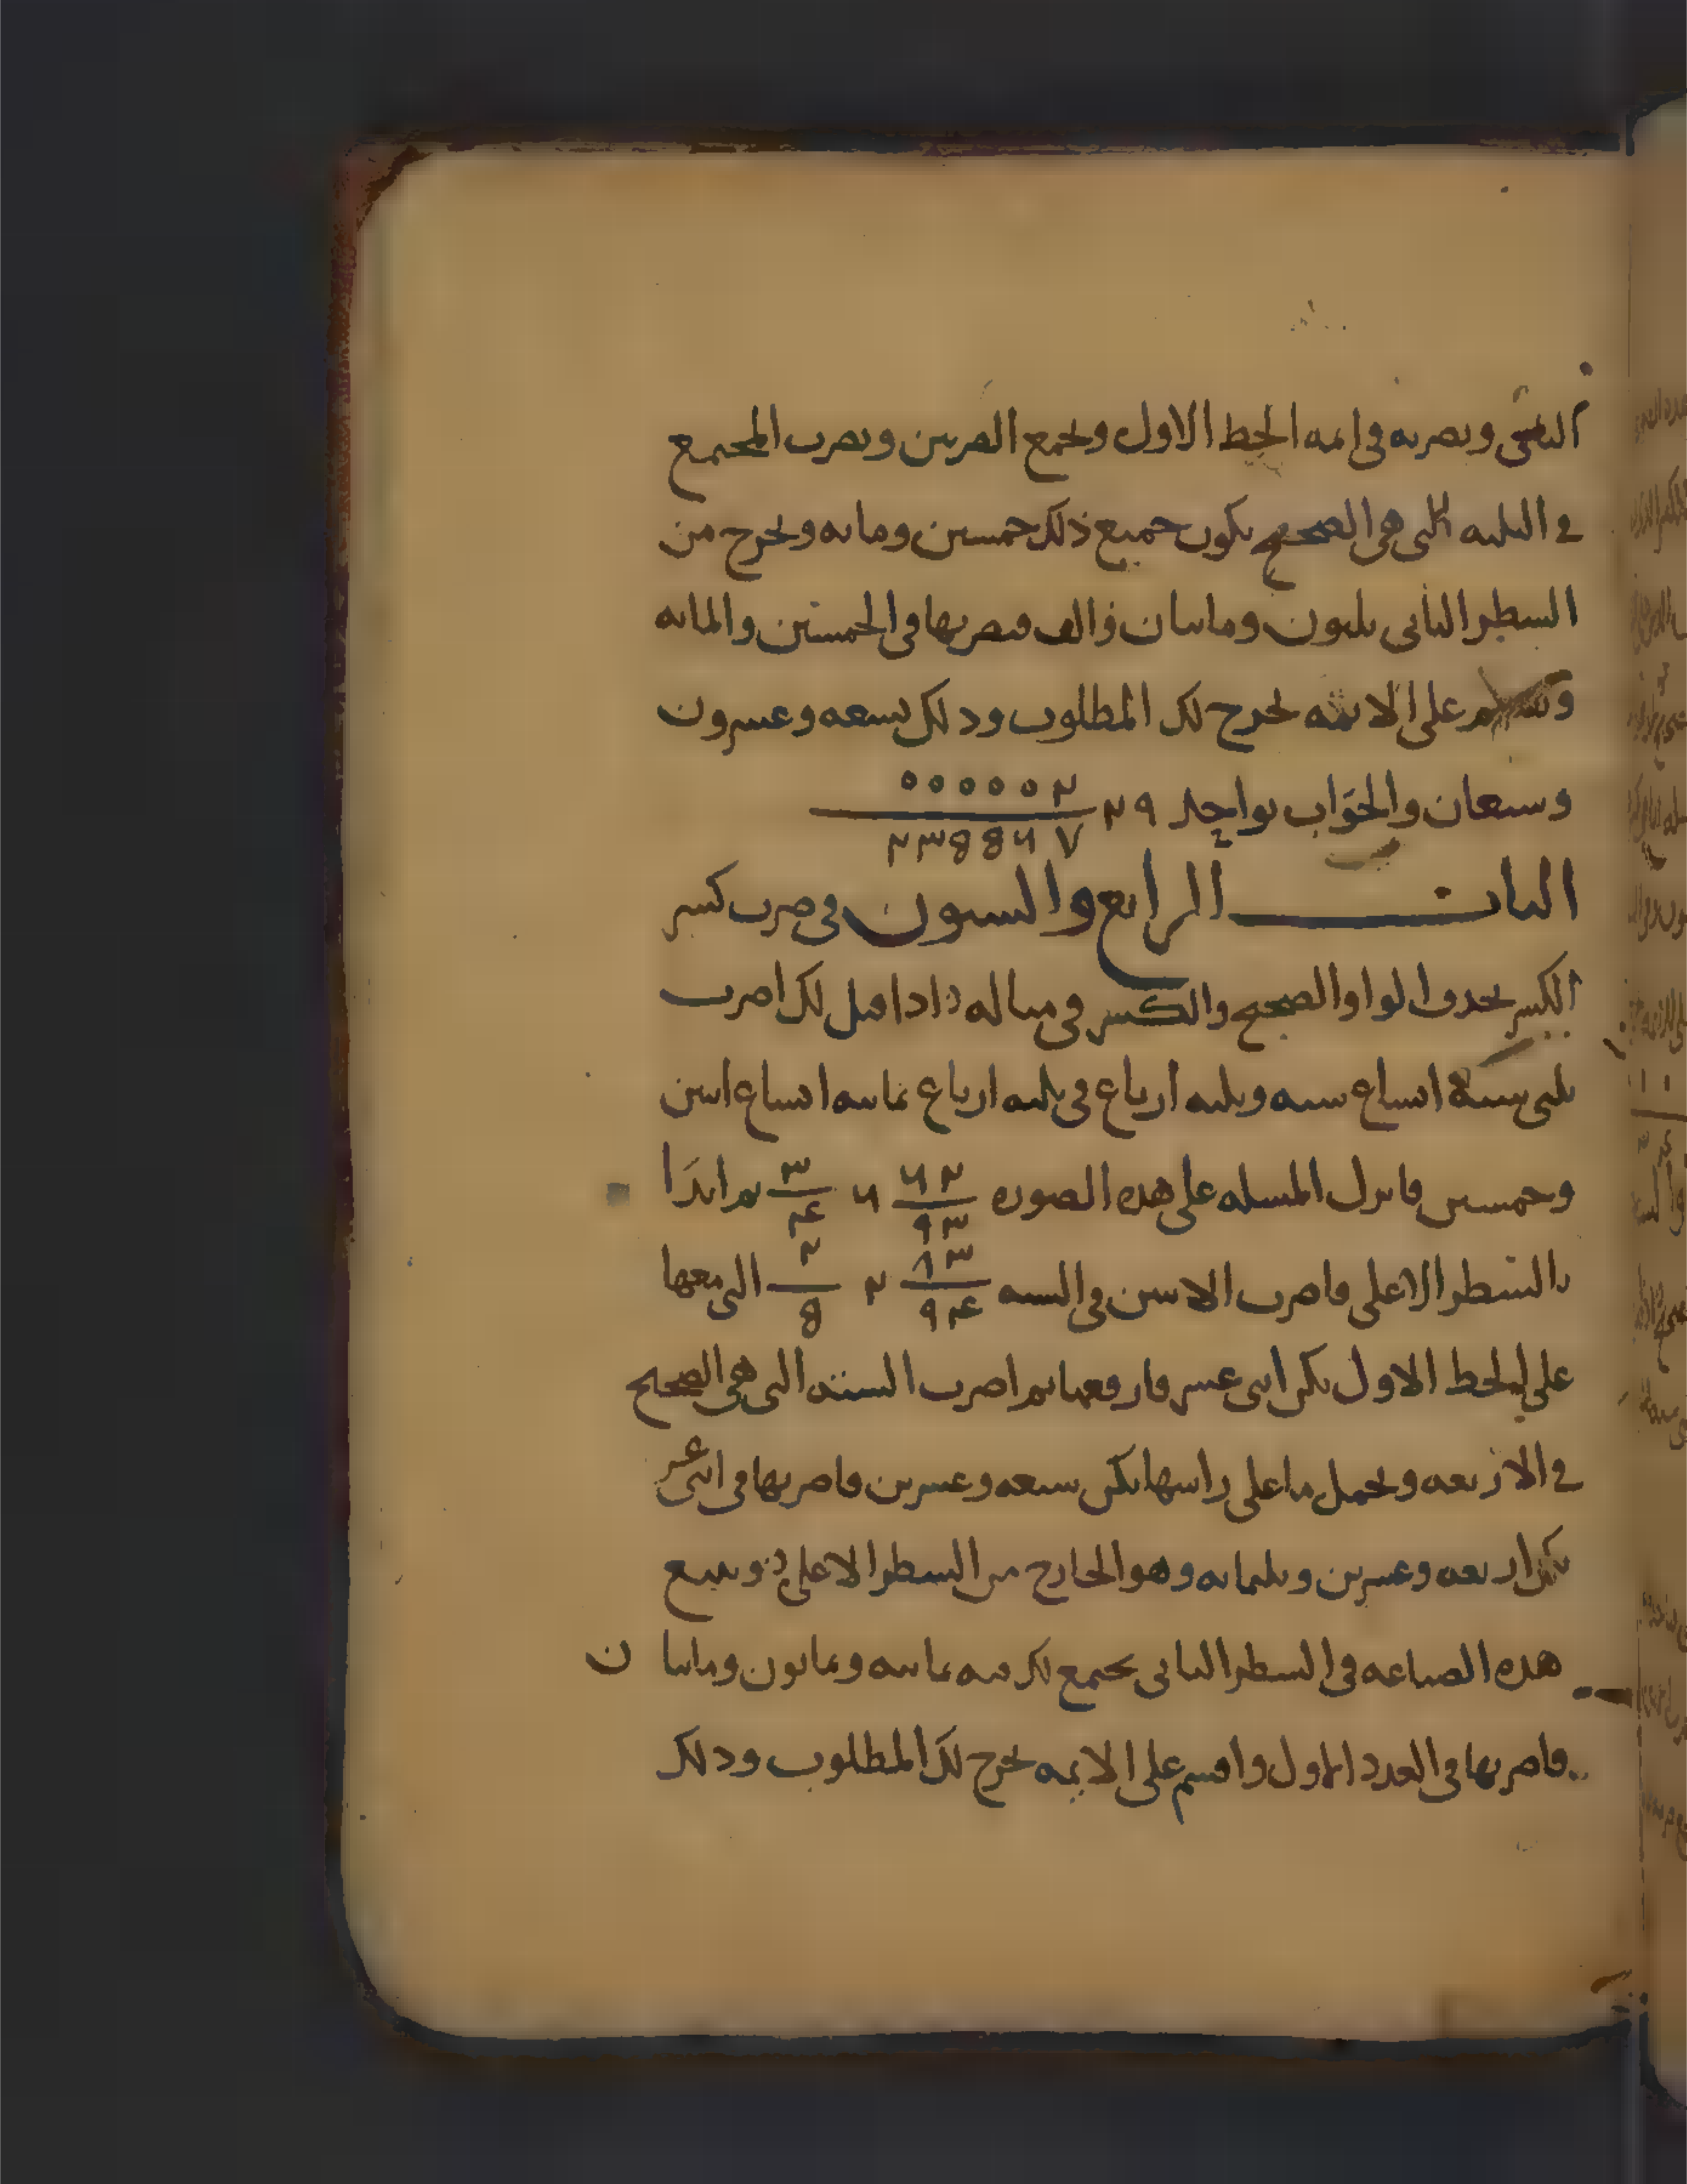 الىاقى وىصربه فى ائمه الخط الاول وىجمع الضربىن وىضرب المجتمع
فى الثلثه التى هى الصحيح يكون جميع ذلك خمسىن ومائه ويخرج من
السطر الثانى ثلثون ومائتان والف فىضربها فى الخمسىن والمائه
على الائمه يخرج لك المطلوب وذلك تسعه وعشرون
وسبعان والجواب بواحد ٢٩ ٢٠٠٠٠٠ ٧٦٥٥٣٢
الباب الرابع والستون فى ضرب كسر
الكسر بحذف الواو والصحيح والكسر فى مىاله اذا قيل لك اضرب
ثلثى ستة اتساع سته وثلثه ارباع فى ثلثه ارباع ثمانىه اتساع اثنىن
وخمسىن فانزل المسله على هذه الصوره ٢ ٦ ٣ ٩ ٦ ٣ ٤ ثم ابدا
بالسطر الاعلى فاضرب الاثنىن فى السته ٣ ٨ ٤ ٩ ٢ ٢ ٥ التى معها
على الخط الاول يكن اثنى عشر فارفعها ثم اضرب السته التى هى الصحيح
فى الاربعه وتحمل ما على راسها يكن سبعه وعشرىن فاضربها فى اثنى عشر
يكن اربعه وعشرىن وثلثمائه وهو الخارج من السطر الاعلى وتصنع
هذه الصناعه فى السطر الثانى يجتمع لك منه ثمانىه وثمانون ومائتا ن
فاضربها فى العدد الاول واقسم على الائمه يخرج لك المطلوب وذلك